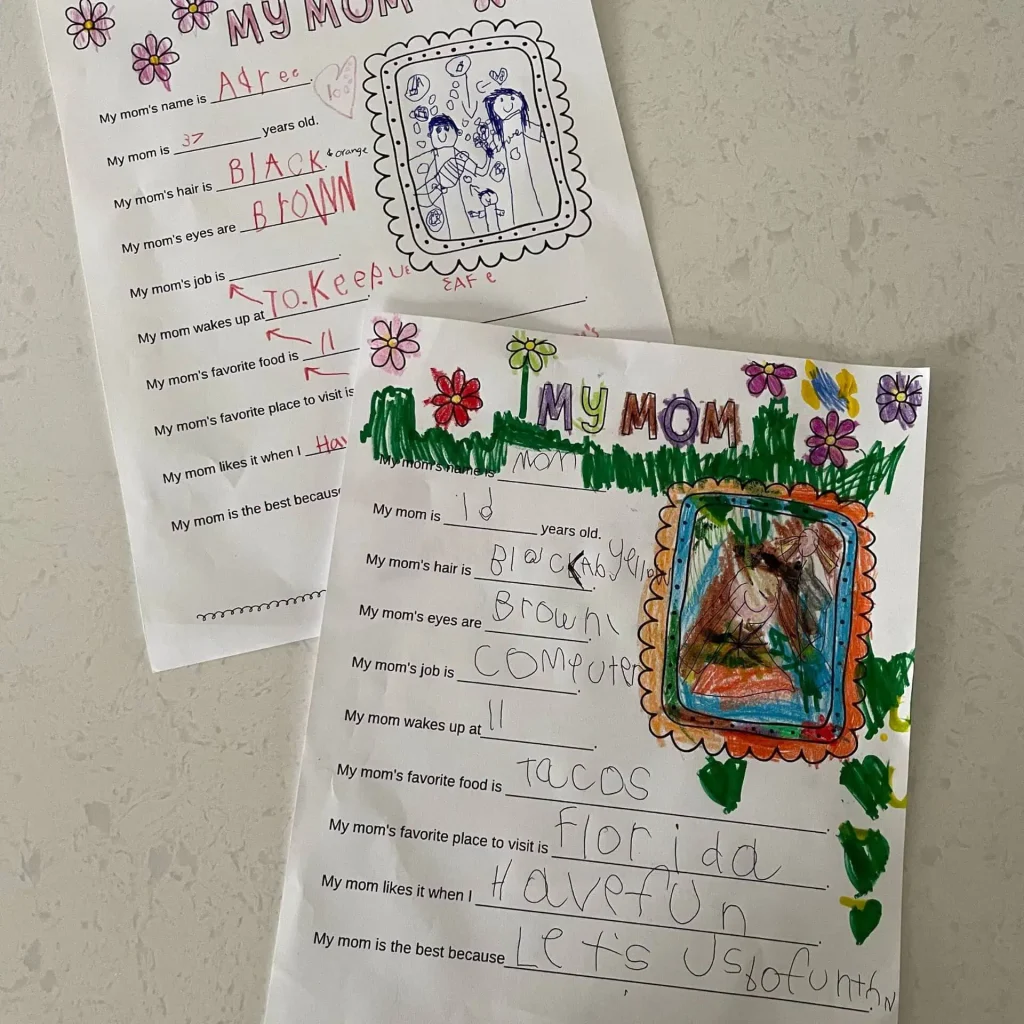 MY MOM
My mom's name is Adree.
My mom is 37 years old.
My mom's hair is BlACK. & orange
My mom's eyes are BrOWN
My mom's job is .
TO. KeeP. Us SAFe
My mom wakes up at
My mom's favorite food is 11
My mom's favorite place to visit is
My mom likes it when I Hav
My mom is the best because
MY MOM
My mom's name is MOM
My mom is 1d years old.
My mom's hair is BlaCK Ab yellow.
My mom's eyes are Brown.
My mom's job is COMPuter.
My mom wakes up at 11.
My mom's favorite food is TaCOS.
My mom's favorite place to visit is Florida.
My mom likes it when I Have fUn.
My mom is the best because Let's Us do fun thN.